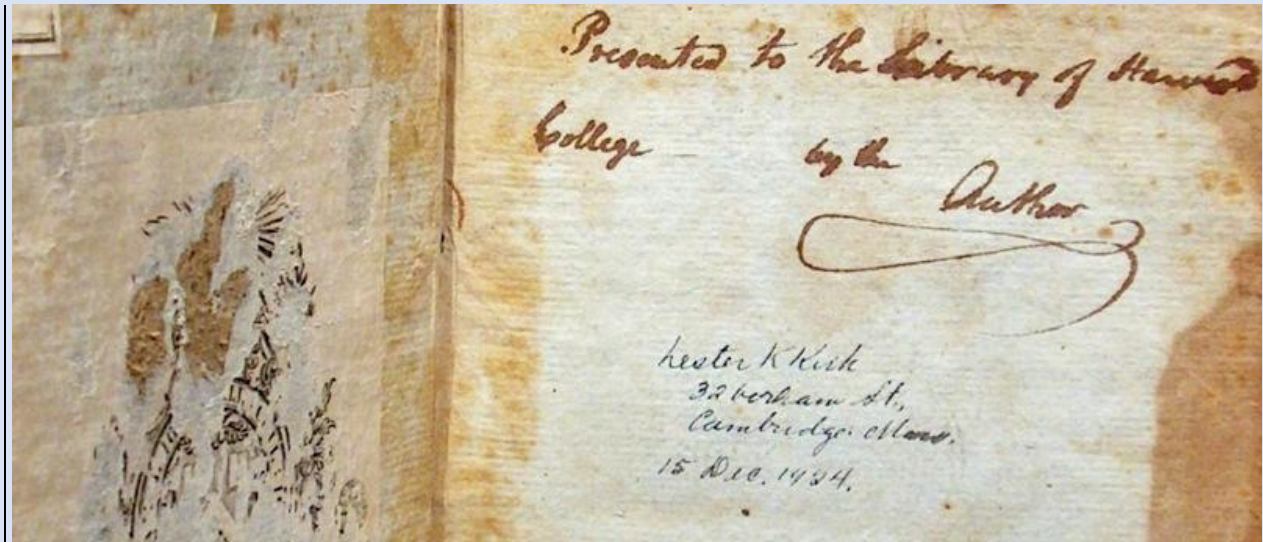 Presented to the Library of Harvard
College by the
Author
Lester K Kirk
32 Gorham St.,
Cambridge. Mass.
15 Dec. 1924.